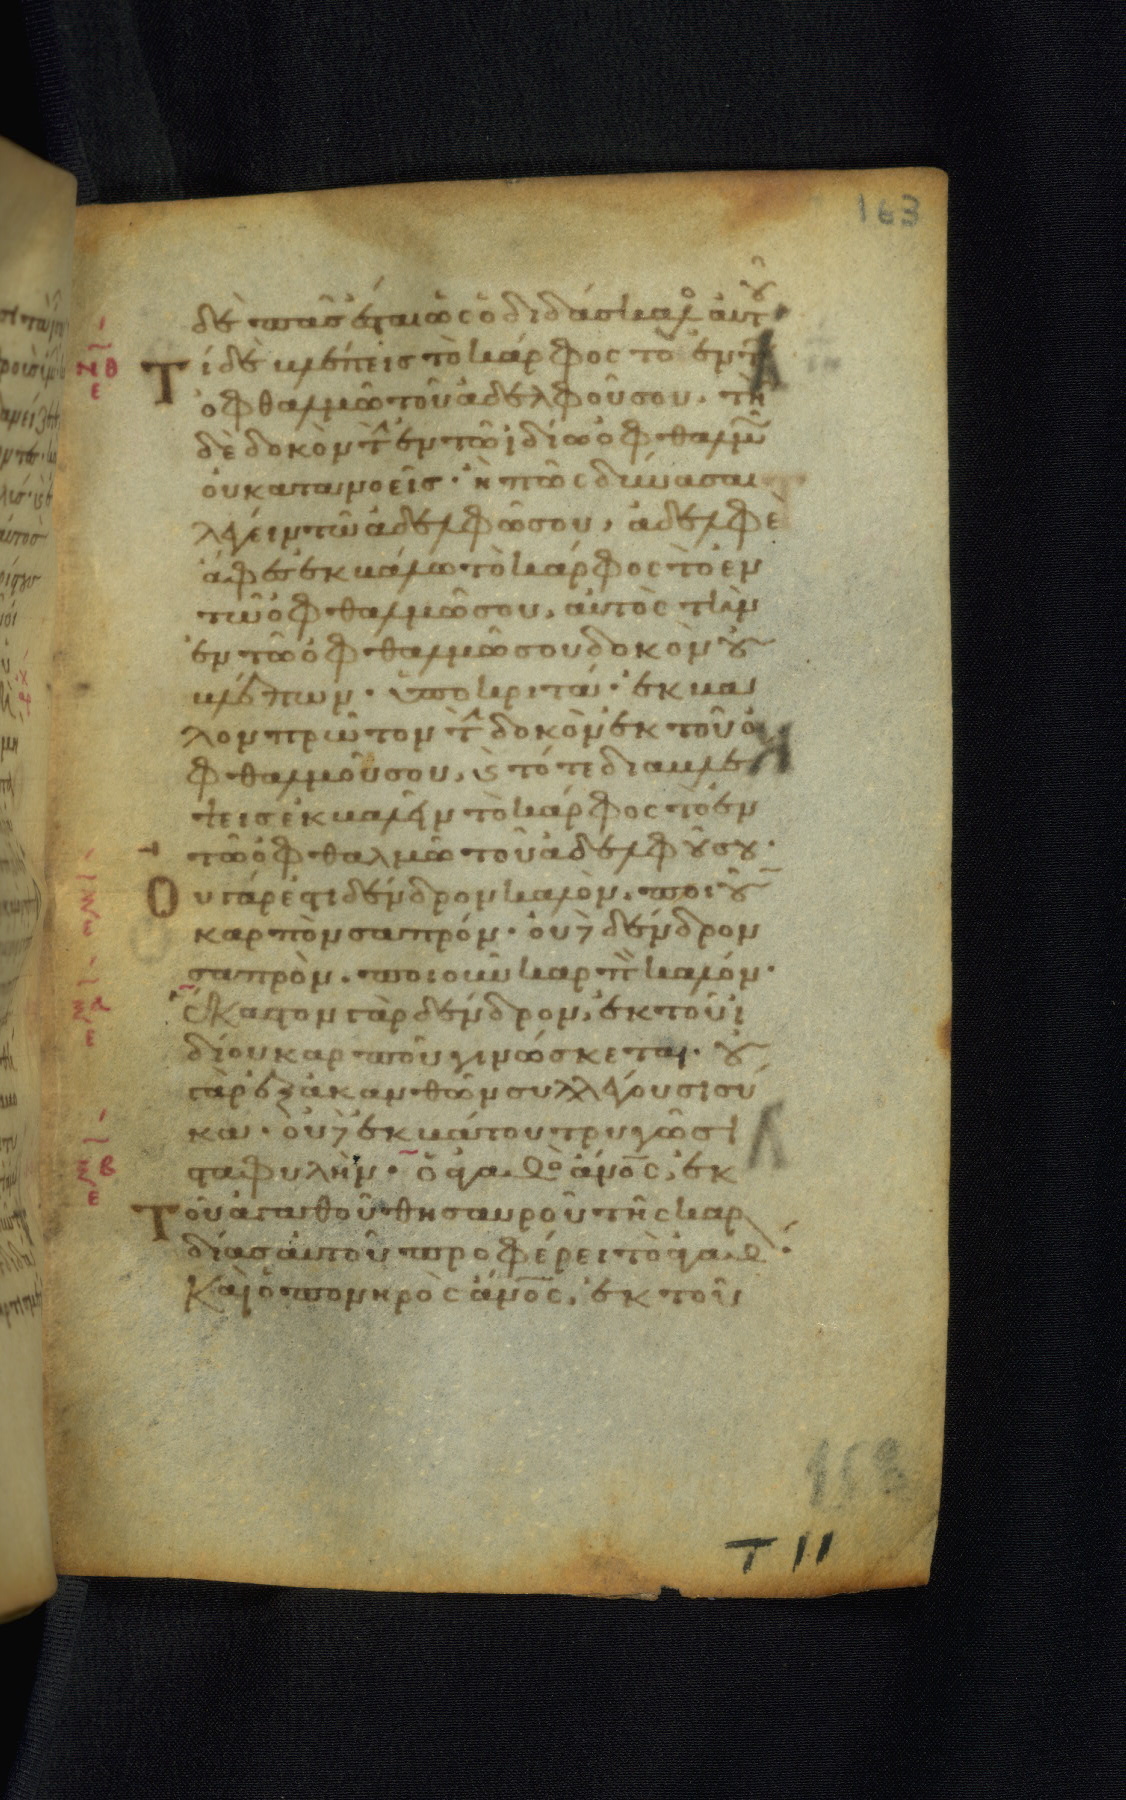 163
δὲ πᾶς ἔσται ὡς ὁ διδάσκαλο αὐτοῦ
Τί δὲ βλέπεις τὸ κάρφος τὸ ἐν τῶ
ὀφθαλμῶ τοῦ ἀδελφοῦ σου, τὴν
δὲ δοκὸν τὴν ἐν τῶ ἰδίω ὀφθαλμῶ
οὐ κατανοεῖς· ἢ πῶς δύνασαι
λέγειν τῶ ἀδελφῶ σου, ἀδελφὲ
ἄφες ἐκβάλω τὸ κάρφος τὸ ἐν
τῶ ὀφθαλμῶ σου, αὐτὸς τὴν
ἐν τῶ ὀφθαλμῶ σου δοκὸν οὐ
βλέπων· ὑποκριτά· ἔκβα
λον πρῶτον τὴν δοκὸν ἐκ τοῦ ὀ
φθαλμοῦ σου, ϛ τότε διαβλέ
ψεις ἐκβαλεῖν τὸ κάρφος τὸ ἐν
τῶ ὀφθαλμῶ τοῦ ἀδελφοῦ σου·
Οὐ γάρ ἐστι δένδρον καλὸν, ποιοῦν
καρπὸν σαπρόν· οὐδὲ δένδρον
σαπρὸν, ποιοῦν καρπὸν καλόν·
ἕκαστον γὰρ δένδρον, ἐκ τοῦ ἰ
δίου καρποῦ γινώσκεται· οὐ
γὰρ ἐξ ἀκανθῶν συλλέγουσι σῦ
κα· οὐδὲ ἐκ βάτου τρυγῶσι
σταφυλήν· ὁ ἀγαθὸ ἄνος, ἐκ
Τοῦ ἀγαθοῦ θησαυροῦ τῆς καρ
δίας αὐτοῦ προφέρει τὸ ἀγαθ·
Καὶ ὁ πονηρὸς ἄνος, ἐκ τοῦ
T 11